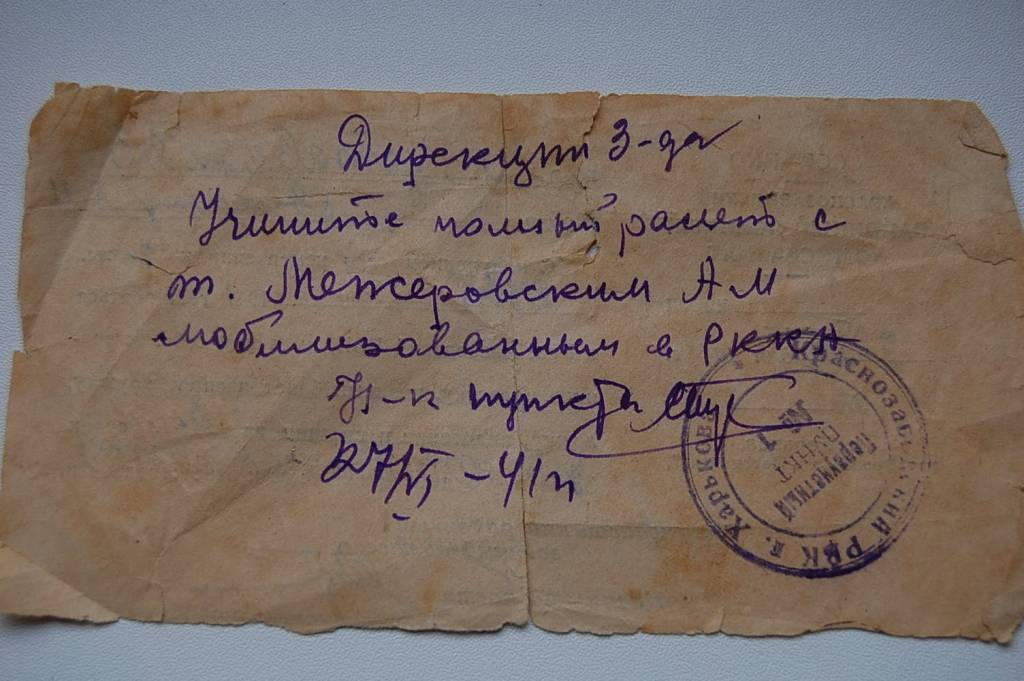 Дирекции З-да
Учините полный расчет с
т. Межеровским А М
мобилизованным в РККА
Н-к пункта
27/VI – 41 г
Краснозаводский РВК г. Харькова
Призывной
ПУНКТ
№ 1